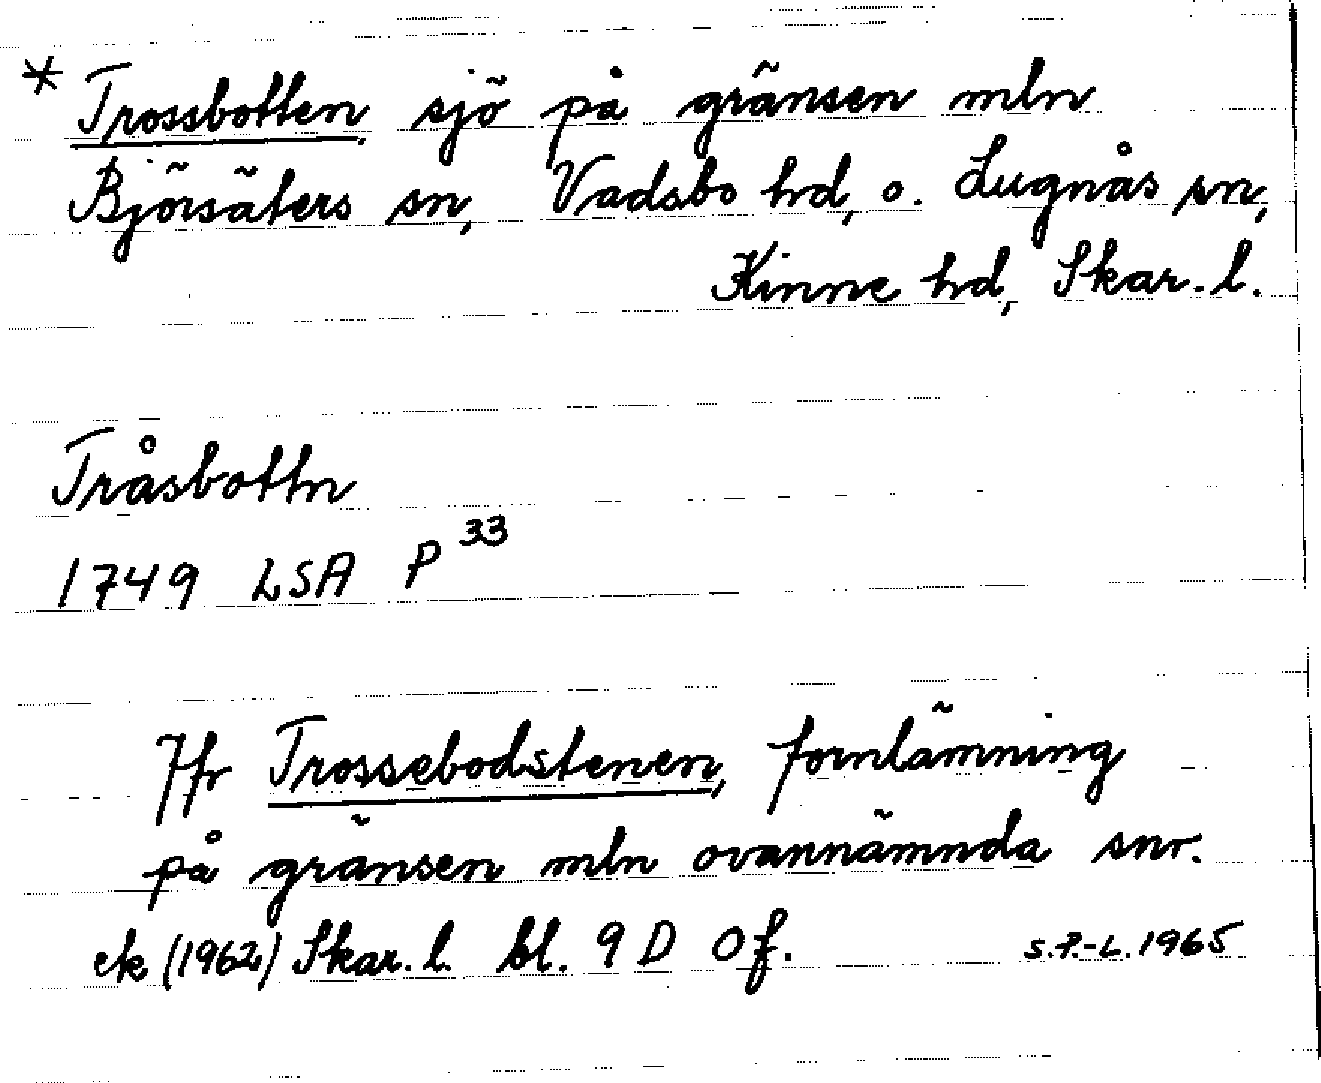 * Trossbotten, sjö på gränsen mln
Björsäters sn, Vadsbo hd, o. Lugnås sn,
Kinne hd, Skar. l.
Tråsbottn
1749 LSA P 33
Jfr Trossebodstenen, fornlämning
på gränsen mln ovannämnda snr.
ek (1962) Skar. l. bl. 9 D Of.
S.P.-L. 1965